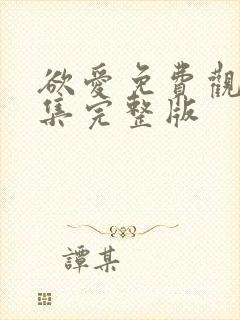 欲愛免費觀
集完整版
譚某